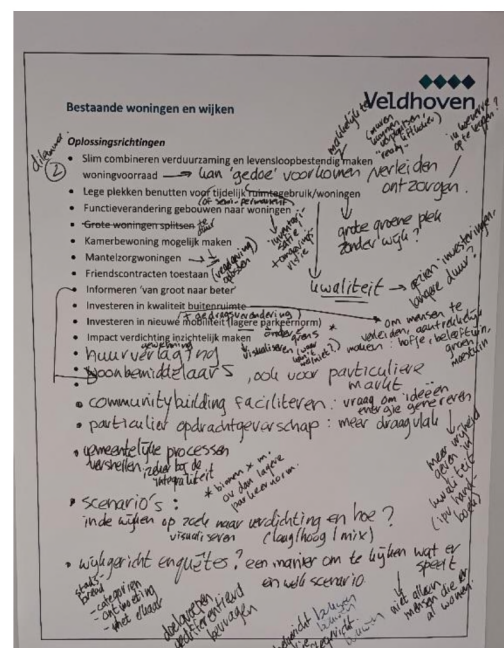 Veldhoven
Bestaande woningen en wijken
Oplossingsrichtingen
dilemma
2
• Slim combineren verduurzaming en levensloopbestendig maken
woningvoorraad → kan 'gedoe' voorkomen / verleiden /
ontzorgen.
• Lege plekken benutten voor tijdelijk ruimtegebruik/woningen
(of semi-permanent)
• Functieverandering gebouwen naar woningen
• Grote woningen splitsen te duur
• Kamerbewoning mogelijk maken
• Mantelzorgwoningen
• Friendscontracten toestaan
• Informeren 'van groot naar beter'
• Investeren in kwaliteit buitenruimte
(+ gedragsverandering)
• Investeren in nieuwe mobiliteit (lagere parkeernorm)
• Impact verdichting inzichtelijk maken
visualiseren
grote groene plek
zonder wijk?
kwaliteit
langere duur?
om mensen te
verleiden, aantrekkelijk
maken: hofje, beleeftuin,
groen
moestuin
• huurverlaging
• woonbemiddelaars, ook voor particuliere
markt
• community building faciliteren: vraag om ideeën
energie genereren
• particulier opdrachtgeverschap: meer draagvlak
• gemeentelijke processen
versnellen, zeker bij de
integraliteit
* binnen x m.
ov dan lagere
parkeernorm.
meer vrijheid
geven in
kwaliteit
• scenario's:
in de wijken op zoek naar verdichting en hoe?
visualiseren (laag/hoog/mix)
• wijkgericht enquêtes? een manier om te kijken wat er
speelt
en welk scenario
niet alleen
mensen die er
al wonen.
stads-
breed
- categoriën
- ontmoeting
- met elkaar
doelgroepen
gedifferentieerd
bevragen